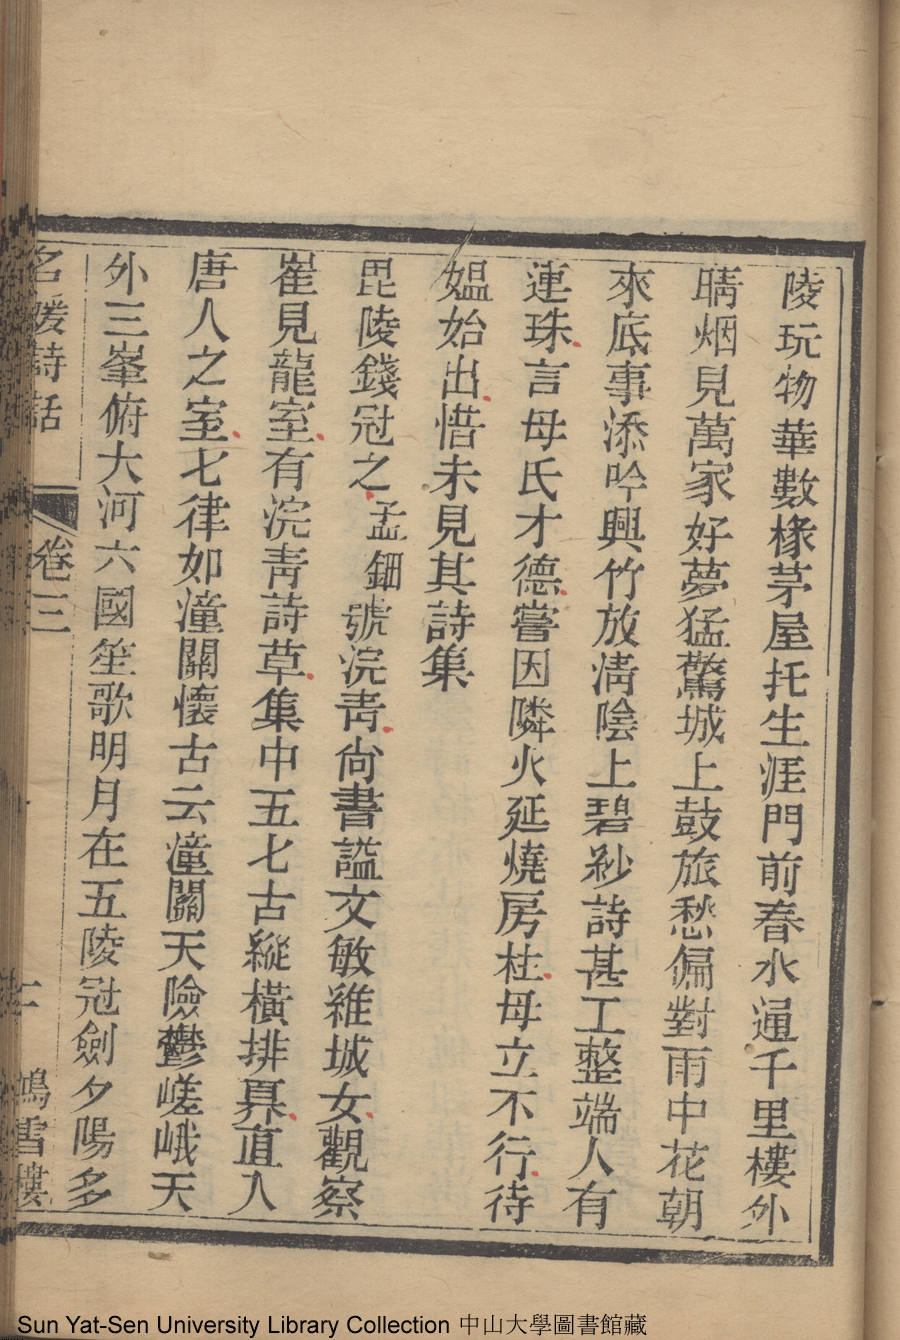 陵玩物華數椽茅屋托生涯門前春水通千里樓外
晴烟見萬家好夢猛驚城上鼓旅愁偏對雨中花朝
來底事添吟興竹放淸陰上碧紗詩甚工整端人有
連珠言母氏才德嘗因隣火延燒房杜母立不行待
媼始出惜未見其詩集
毘陵錢冠之孟鈿號浣靑尙書謚文敏維城女觀察
崔見龍室有浣靑詩草集中五七古縱橫排奡直入
唐人之室七律如潼關懷古云潼關天險鬱嵯峨天
外三峯俯大河六國笙歌明月在五陵冠劍夕陽多
名媛詩話
卷三
鴻雪樓
Sun Yat-Sen University Library Collection 中山大學圖書館藏